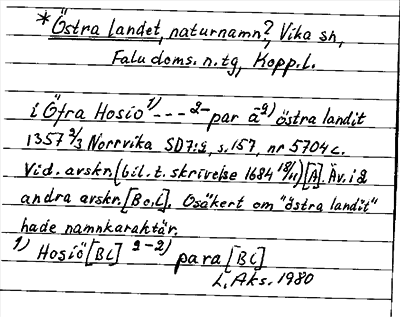 *Östra landet, naturnamn?, Vika sn,
Falu doms. n. tg, Kopp. l.
i Öfra Hosio 1) --- 2- par á -2) östra landit
1357 2/3 Norrvika SD7:2, s. 157, nr 5704 c.
Vid. avskr. (bil. t. skrivelse 1684 18/11) [A]. Äv. i 2
andra avskr. [B o. C]. Osäkert om "östra landit"
hade namnkaraktär.
1) Hosiö [BC] 2-2) para [BC]
L. Aks. 1980